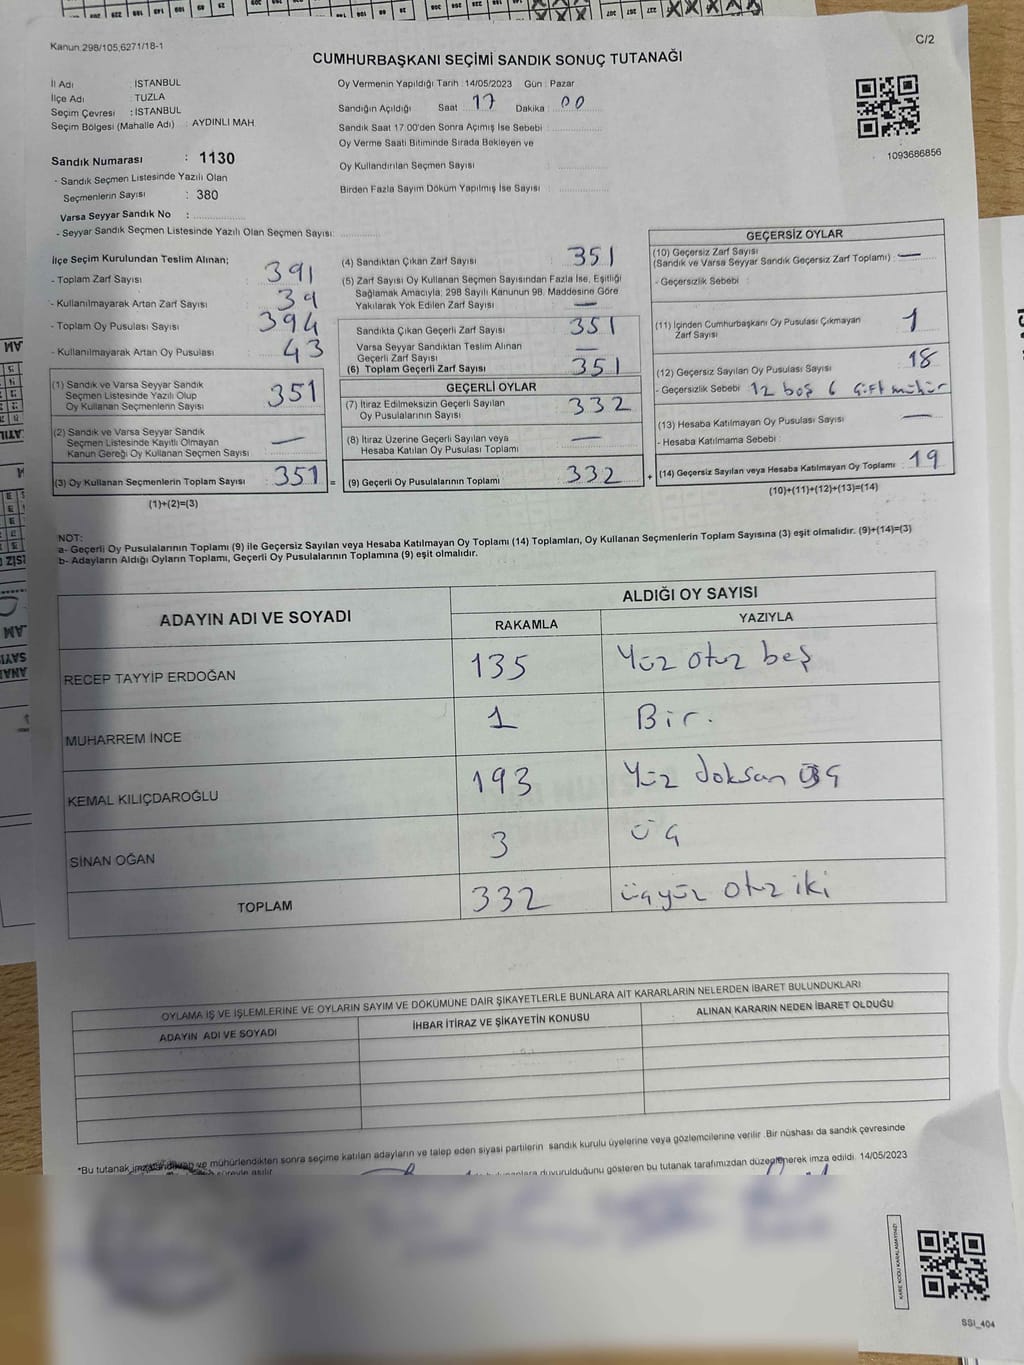 Kanun 298/105,6271/18-1
C/2
CUMHURBAŞKANI SEÇİMİ SANDIK SONUÇ TUTANAĞI
İl Adı : İSTANBUL
İlçe Adı : TUZLA
Seçim Çevresi : İSTANBUL
Seçim Bölgesi (Mahalle Adı) : AYDINLI MAH.
Sandık Numarası : 1130
- Sandık Seçmen Listesinde Yazılı Olan
Seçmenlerin Sayısı : 380
Varsa Seyyar Sandık No :
- Seyyar Sandık Seçmen Listesinde Yazılı Olan Seçmen Sayısı:
Oy Vermenin Yapıldığı Tarih : 14/05/2023 Gün : Pazar
Sandığın Açıldığı Saat 17 Dakika : 00
Sandık Saat 17.00'den Sonra Açımış İse Sebebi :
Oy Verme Saati Bitiminde Sırada Bekleyen ve
Oy Kullandırılan Seçmen Sayısı :
Birden Fazla Sayım Döküm Yapılmış İse Sayısı :
1093686856
İlçe Seçim Kurulundan Teslim Alınan;
- Toplam Zarf Sayısı : 391
- Kullanılmayarak Artan Zarf Sayısı : 39
- Toplam Oy Pusulası Sayısı : 394
- Kullanılmayarak Artan Oy Pusulası : 43
(1) Sandık ve Varsa Seyyar Sandık
Seçmen Listesinde Yazılı Olup
Oy Kullanan Seçmenlerin Sayısı : 351
(2) Sandık ve Varsa Seyyar Sandık
Seçmen Listesinde Kayıtlı Olmayan
Kanun Gereği Oy Kullanan Seçmen Sayısı : —
(3) Oy Kullanan Seçmenlerin Toplam Sayısı : 351 =
(1)+(2)=(3)
(4) Sandıktan Çıkan Zarf Sayısı : 351
(5) Zarf Sayısı Oy Kullanan Seçmen Sayısından Fazla İse, Eşitliği
Sağlamak Amacıyla; 298 Sayılı Kanunun 98. Maddesine Göre
Yakılarak Yok Edilen Zarf Sayısı : —
Sandıkta Çıkan Geçerli Zarf Sayısı : 351
Varsa Seyyar Sandıktan Teslim Alınan
Geçerli Zarf Sayısı : —
(6) Toplam Geçerli Zarf Sayısı : 351
GEÇERLİ OYLAR
(7) İtiraz Edilmeksizin Geçerli Sayılan
Oy Pusulalarının Sayısı : 332
(8) İtiraz Üzerine Geçerli Sayılan veya
Hesaba Katılan Oy Pusulası Toplamı : —
(9) Geçerli Oy Pusulalarının Toplamı : 332 +
GEÇERSİZ OYLAR
(10) Geçersiz Zarf Sayısı
(Sandık ve Varsa Seyyar Sandık Geçersiz Zarf Toplamı) : —
- Geçersizlik Sebebi :
(11) İçinden Cumhurbaşkanı Oy Pusulası Çıkmayan
Zarf Sayısı : 1
(12) Geçersiz Sayılan Oy Pusulası Sayısı : 18
- Geçersizlik Sebebi : 12 boş 6 çift mühür
(13) Hesaba Katılmayan Oy Pusulası Sayısı : —
- Hesaba Katılmama Sebebi :
(14) Geçersiz Sayılan veya Hesaba Katılmayan Oy Toplamı : 19
(10)+(11)+(12)+(13)=(14)
NOT:
a- Geçerli Oy Pusulalarının Toplamı (9) ile Geçersiz Sayılan veya Hesaba Katılmayan Oy Toplamı (14) Toplamları, Oy Kullanan Seçmenlerin Toplam Sayısına (3) eşit olmalıdır. (9)+(14)=(3)
b- Adayların Aldığı Oyların Toplamı, Geçerli Oy Pusulalarının Toplamına (9) eşit olmalıdır.
ADAYIN ADI VE SOYADI
ALDIĞI OY SAYISI
RAKAMLA YAZIYLA
RECEP TAYYİP ERDOĞAN 135 Yüz otuz beş
MUHARREM İNCE 1 Bir.
KEMAL KILIÇDAROĞLU 193 Yüz doksan üç
SİNAN OĞAN 3 üç
TOPLAM 332 üçyüz otuz iki
OYLAMA İŞ VE İŞLEMLERİNE VE OYLARIN SAYIM VE DÖKÜMÜNE DAİR ŞİKAYETLERLE BUNLARA AİT KARARLARIN NELERDEN İBARET BULUNDUKLARI
ADAYIN ADI VE SOYADI İHBAR İTİRAZ VE ŞİKAYETİN KONUSU ALINAN KARARIN NEDEN İBARET OLDUĞU
*Bu tutanak imzalandıktan ve mühürlendikten sonra seçime katılan adayların ve talep eden siyasi partilerin sandık kurulu üyelerine veya gözlemcilerine verilir. Bir nüshası da sandık çevresinde
duyurulduğunu gösteren bu tutanak tarafımızdan düzenlenerek imza edildi. 14/05/2023
SSI_404